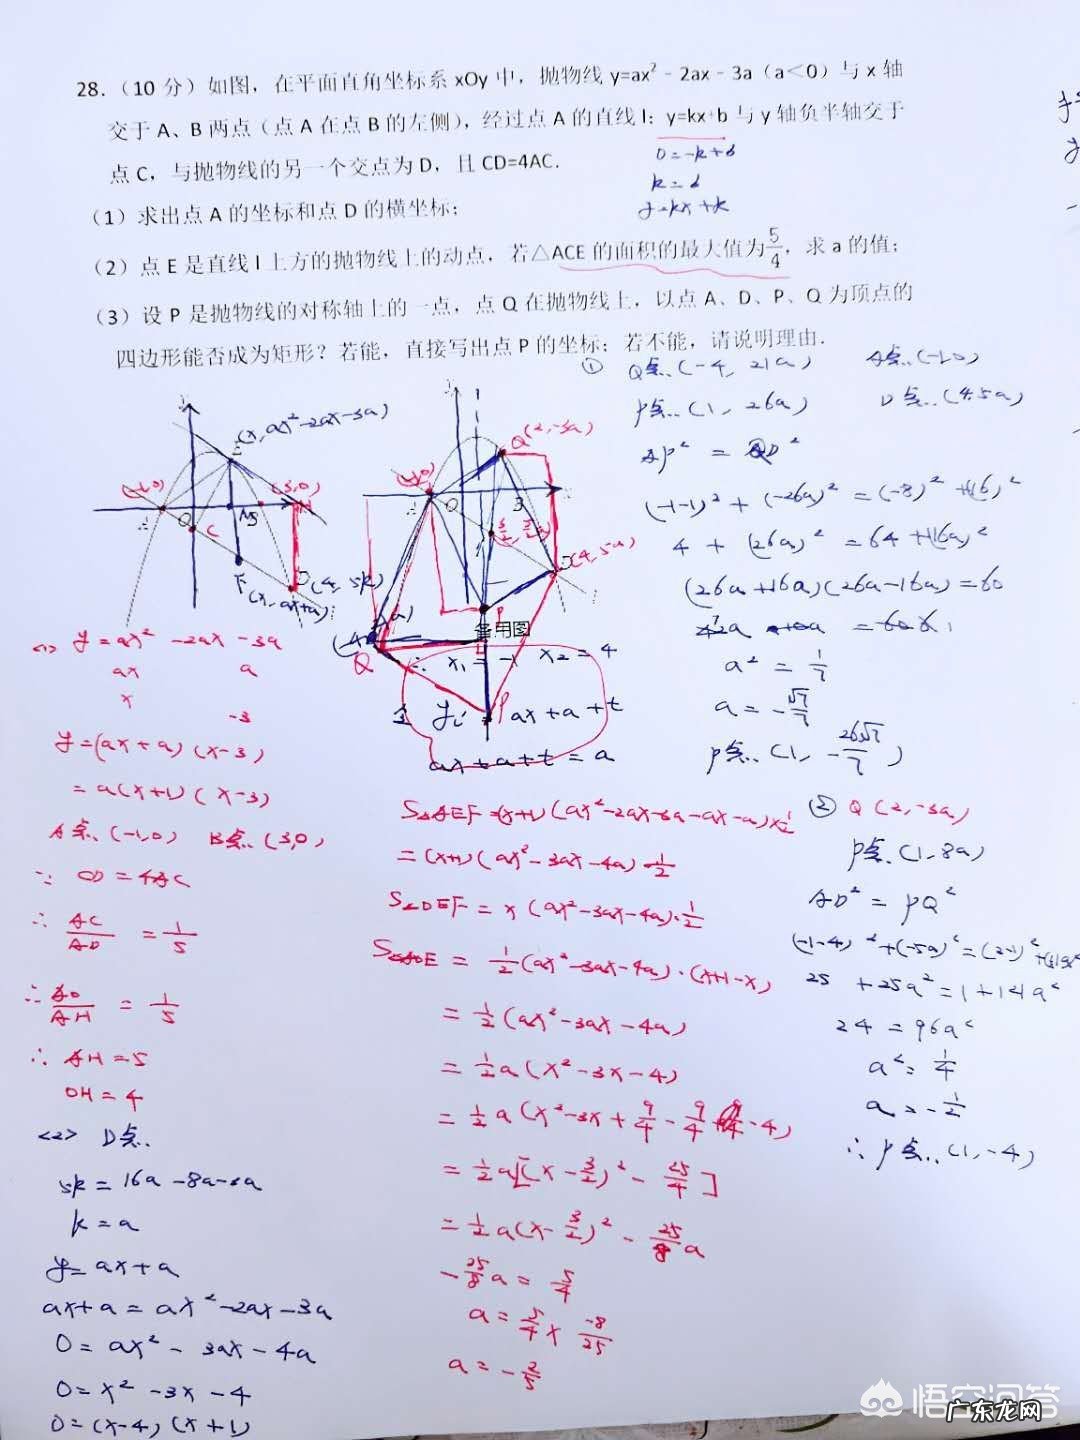 28.（10 分）如图，在平面直角坐标系 xOy 中，抛物线 y=ax²﹣2ax﹣3a（a＜0）与 x 轴
交于 A、B 两点（点 A 在点 B 的左侧），经过点 A 的直线 l：y=kx+b 与 y 轴负半轴交于
点 C，与抛物线的另一个交点为 D，且 CD=4AC．
0=-k+b
k=b
y=kx+k
（1）求出点 A 的坐标和点 D 的横坐标；
（2）点 E 是直线 l 上方的抛物线上的动点，若△ACE 的面积的最大值为5/4，求 a 的值；
（3）设 P 是抛物线的对称轴上的一点，点 Q 在抛物线上，以点 A、D、P、Q 为顶点的
四边形能否成为矩形？若能，直接写出点 P 的坐标；若不能，请说明理由．
① Q点..(-4, 21a) A点..(-1,0)
P点..(1, 26a) D点..(4,5a)
AP² = QD²
(-1-1)²+(-26a)²=(-8)²+(16)²
4+(26a)²=64+(16a)²
(26a+16a)(26a-16a)=60
a²=1/7
a=-√7/7
P点..(1, -26√7/7)
(x, ax²-2ax-3a)
(-1,0)
(3,0)
D(4, 5k)
F(x, ax+a)
Q(2,-3a)
(-1,0)
(4,5a)
备用图
∴ x₁=-1 x₂=4
ax+a+t
ax+a+t=a
<1> y=ax²-2ax-3a
ax a
x -3
y=(ax+a)(x-3)
=a(x+1)(x-3)
A点..(-1,0) B点..(3,0)
∵ CD=4AC
∴ AC/AD=1/5
∴ AO/AH=1/5
∴ AH=5
OH=4
<2> D点..
5k=16a-8a-3a
k=a
y=ax+a
ax+a=ax²-2ax-3a
0=ax²-3ax-4a
0=x²-3x-4
0=(x-4)(x+1)
S△AEF=(x+1)(ax²-2ax-3a-ax-a)×1/2
=(x+1)(ax²-3ax-4a)·1/2
S△DEF=x(ax²-3ax-4a)·1/2
=1/2(ax²-3ax-4a)·(x+1-x)
=1/2(ax²-3ax-4a)
=1/2a(x²-3x-4)
=1/2a(x²-3x+9/4-9/4-4)
=1/2a[(x-3/2)²-25/4]
=1/2a(x-3/2)²-25/8a
-25/8a=5/4
a=5/4×-8/25
a=-2/5
② Q(2,-3a)
P点..(1,8a)
AD²=PQ²
25+25a²=1+121a²
24=96a²
a²=1/4
a=-1/2
∴ P点..(1,-4)
悟空问答
广东龙网